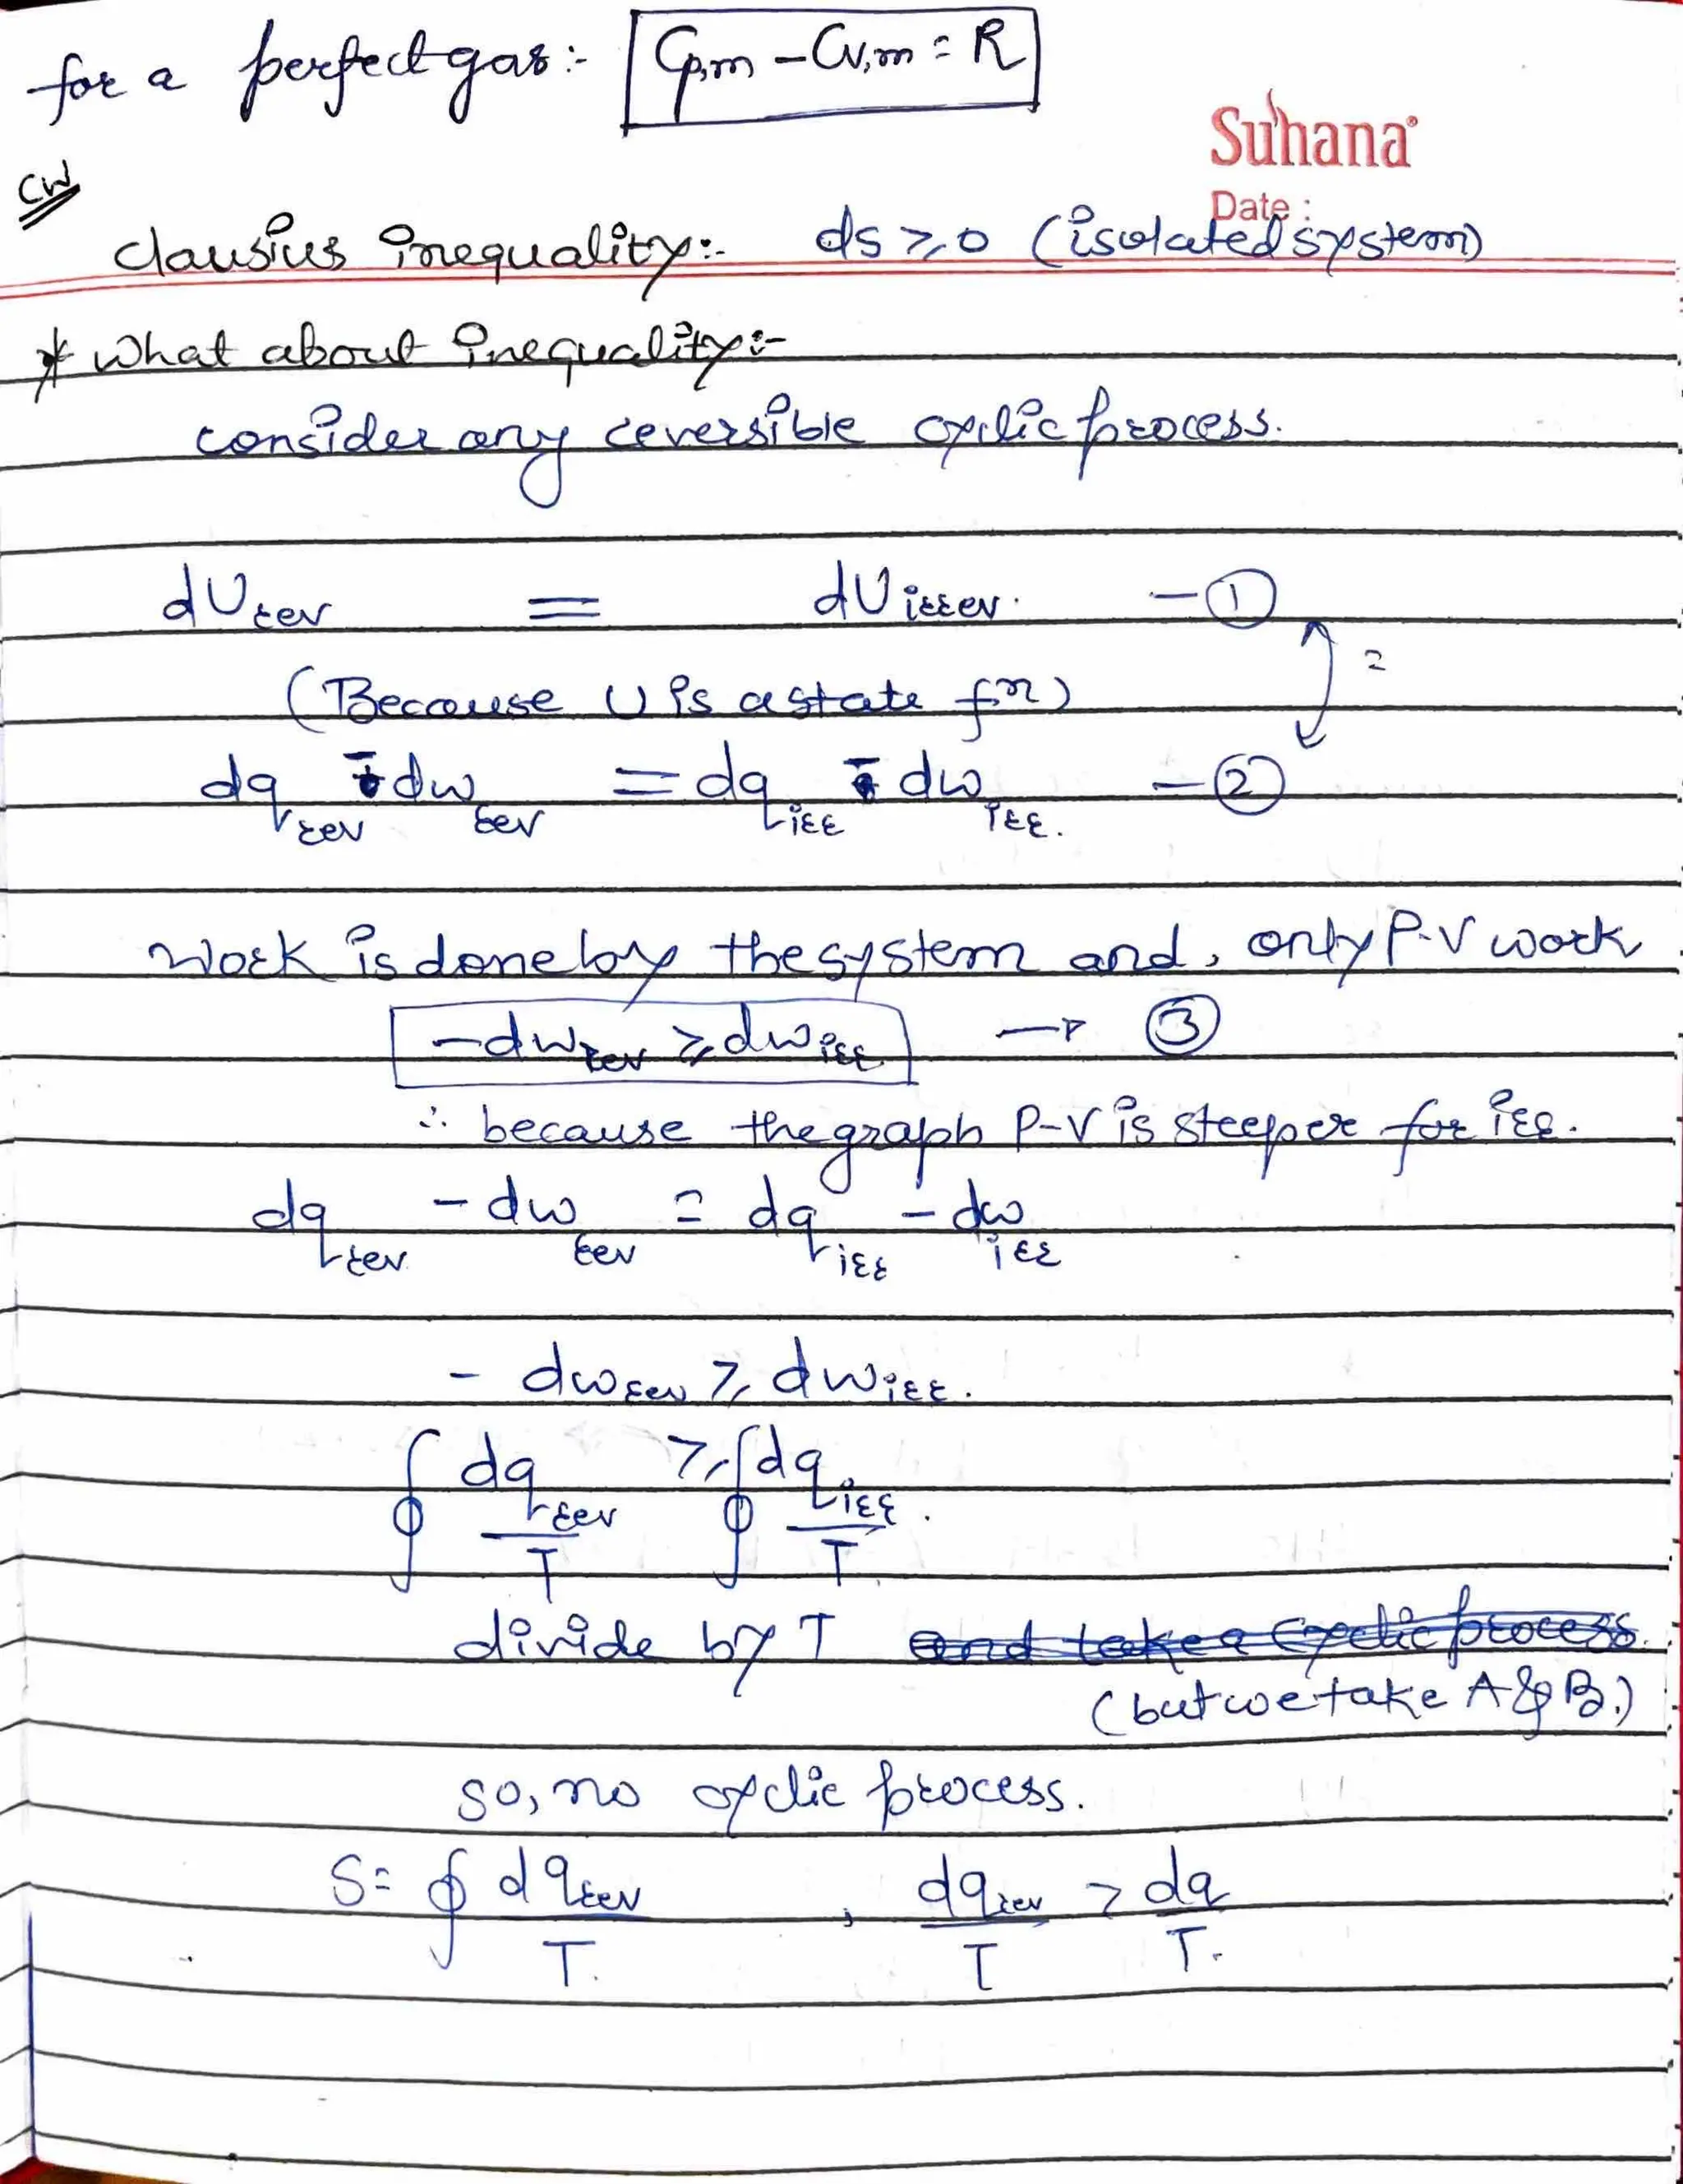 for a perfect gas:- Cp,m - Cv,m = R
Suhana
CW
Date :
Clausius inequality:- ds ≥ 0 (isolated system)
* What about inequality:-
consider any reversible cyclic process.
dUrev = dUirrev. - ①
=
(Because U is a state fn)
dqrev - dwrev = dqirr - dwirr. - ②
Work is done by the system and, only P-V work
-dwrev ≥ dwirr → ③
∴ because the graph P-V is steeper for irr.
dqrev - dwrev = dqirr - dwirr
- dwrev ≥ dwirr.
∮ dqrev/T ≥ ∮ dqirr/T.
divide by T and take a cyclic process
(but we take A & B.)
so, no cyclic process.
S = ∮ dqrev/T. , dqrev/T > dq/T.